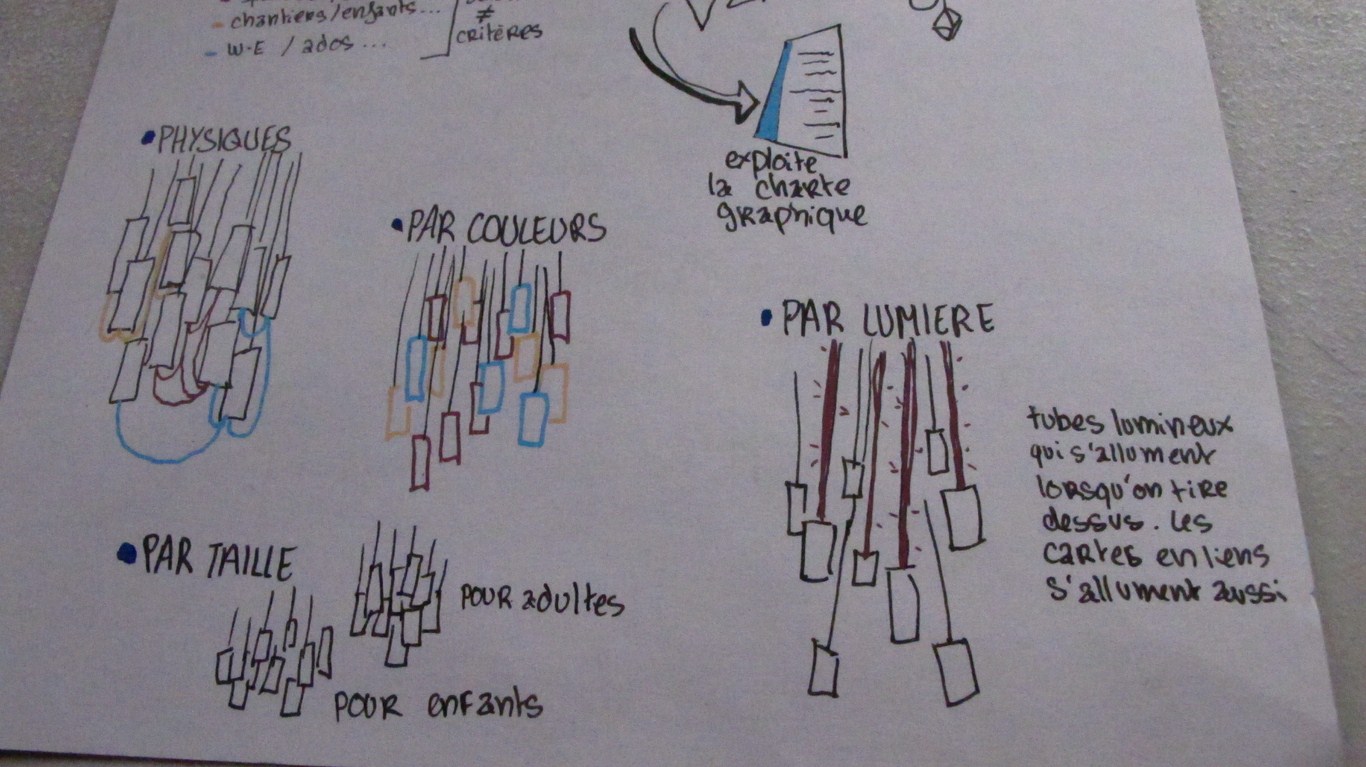 - chantiers/enfants...
≠
- W-E / ados ...
critères
• PHYSIQUES
exploite
la charte
graphique
• PAR COULEURS
• PAR LUMIERE
tubes lumineux
qui s'allument
lorsqu'on tire
dessus. Les
cartes en liens
s'allument aussi
• PAR TAILLE
POUR adultes
POUR enfants